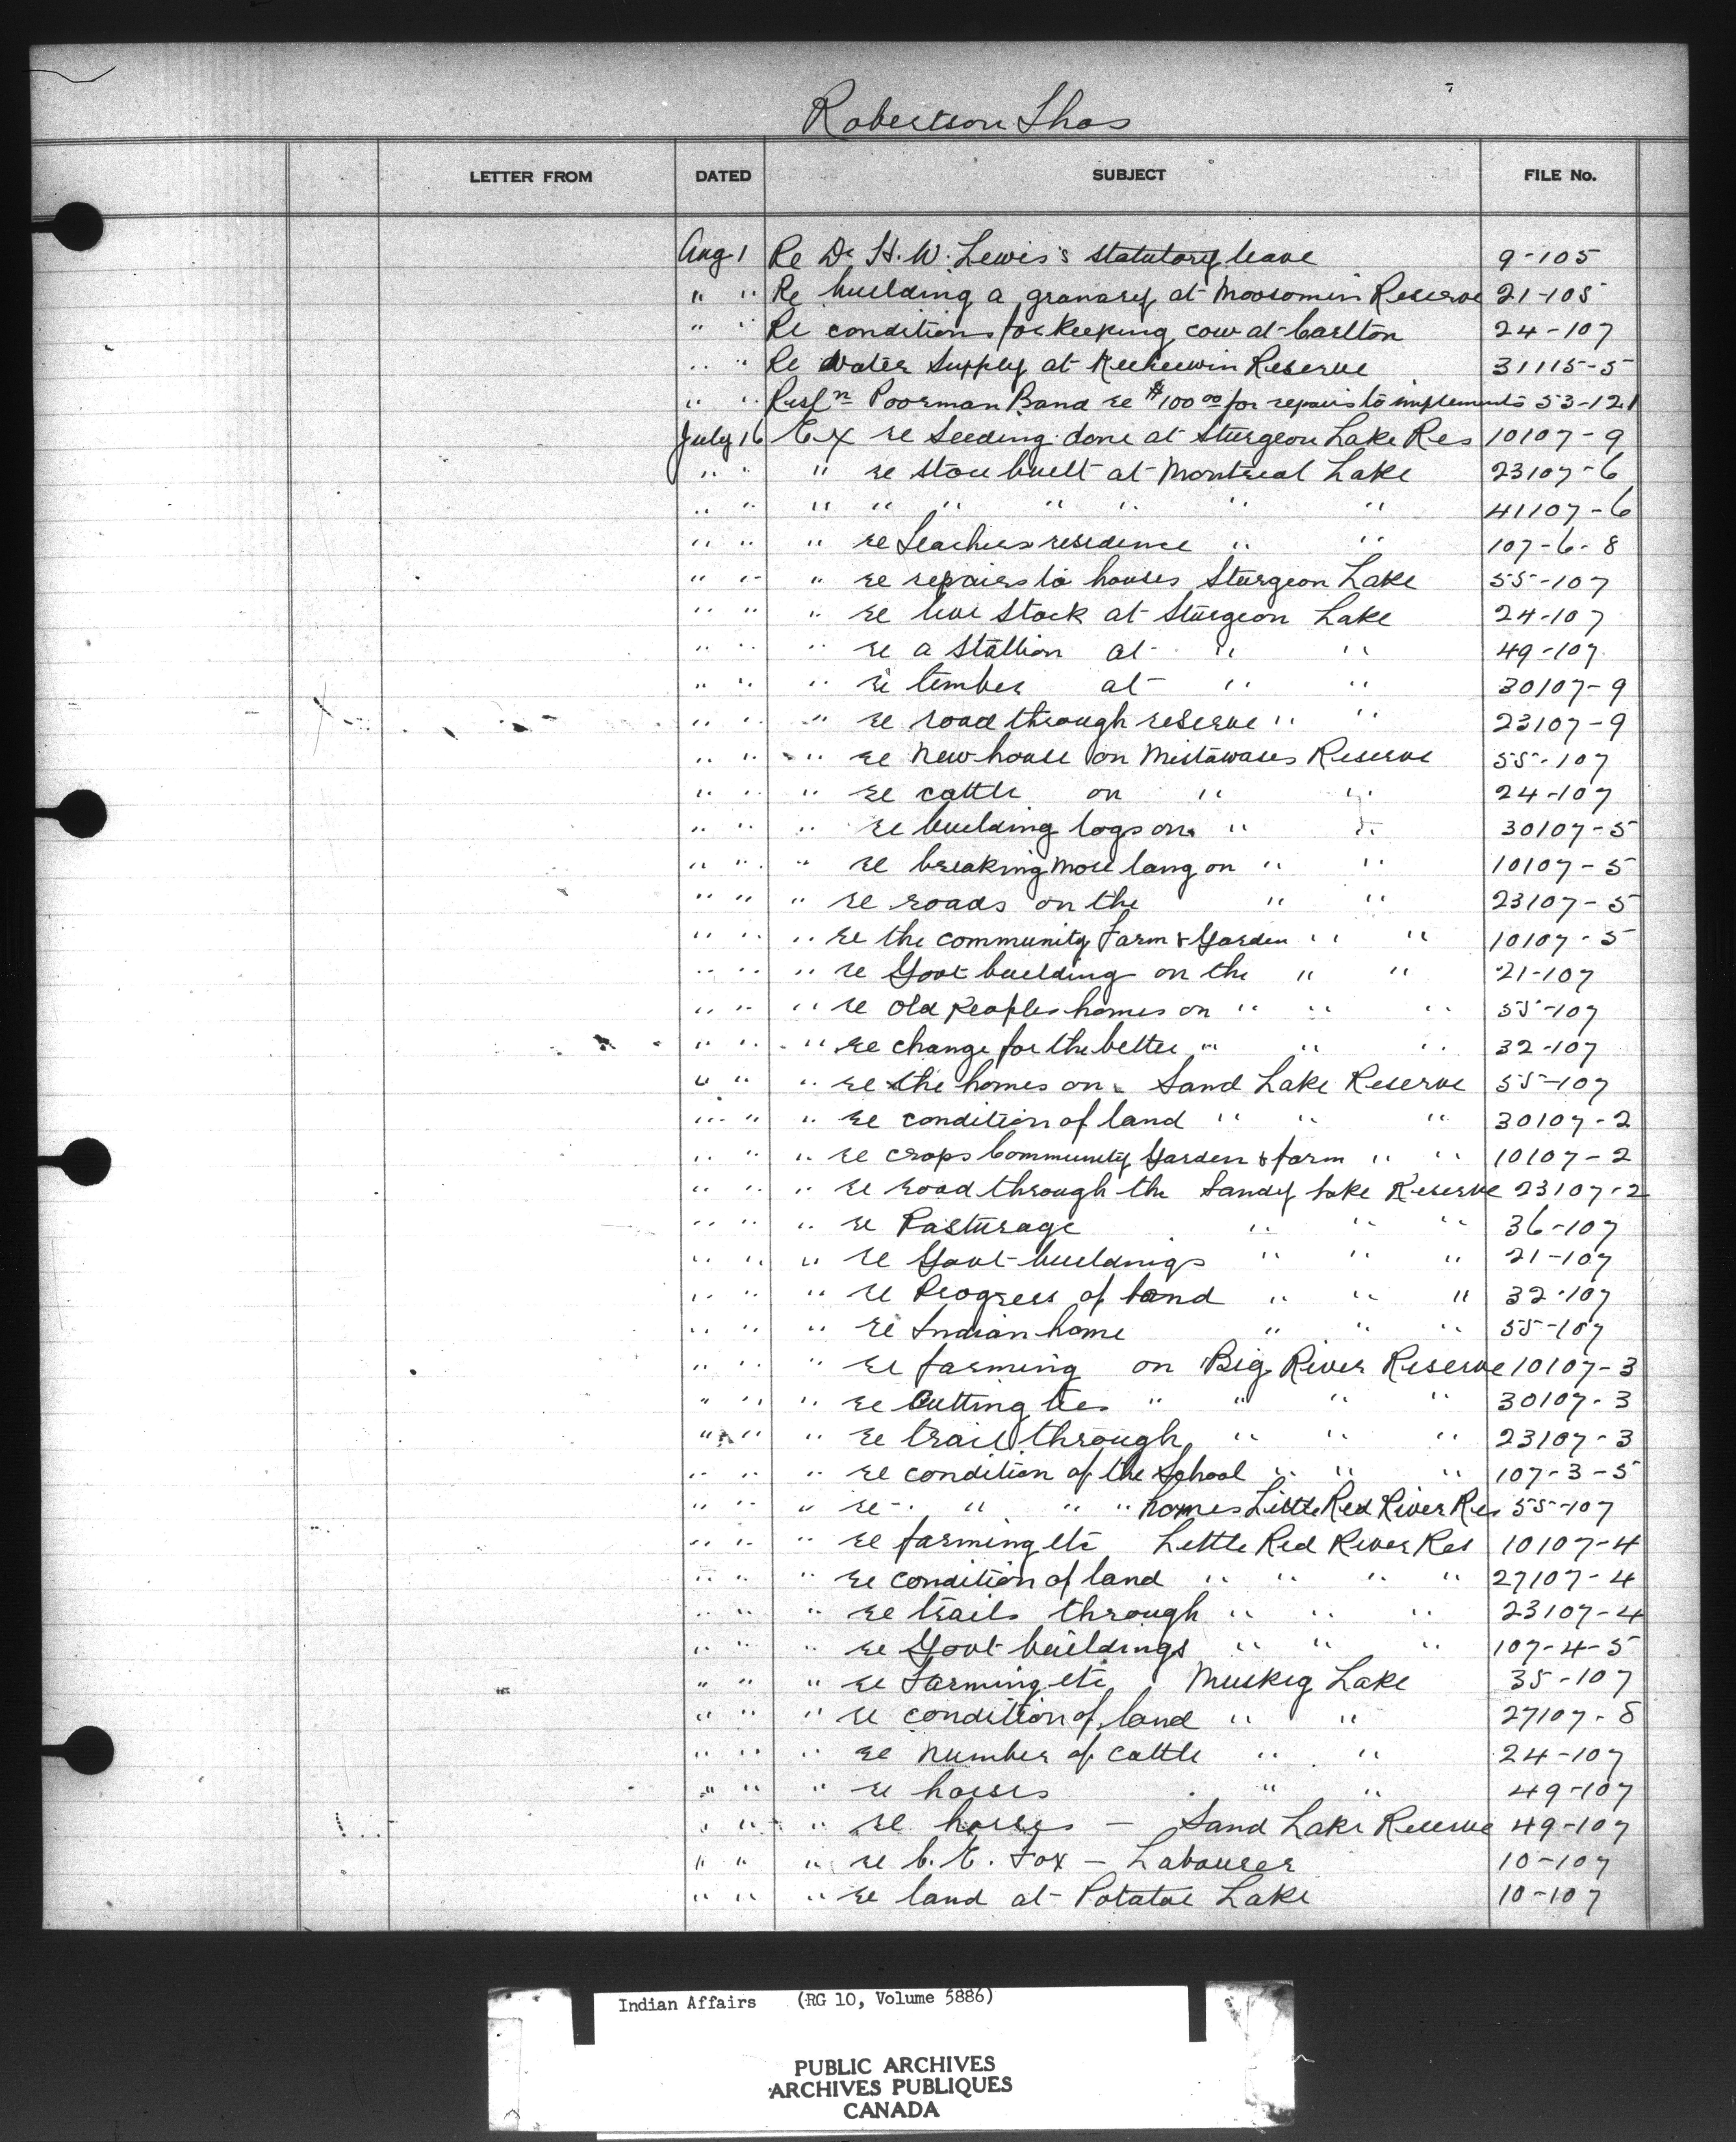 Robertson Thos
LETTER FROM DATED SUBJECT FILE No.
Aug 1 Re Dr H. W. Lewis's statutory leave 9-105
" " Re building a granary at Moosomin Reserve 21-105
" " Re conditions for keeping cow at Carlton 24-107
" " Re Water Supply at Keeheewin Reserve 31115-5
" " Resln Poorman Band re $100.00 for repairs to implements 53-121
July 16 Ex re Seeding done at Sturgeon Lake Res 10107-9
" " " re store built at Montreal Lake 23107-6
" " " " " " " " " 41107-6
" " " re Teachers residence " " 107-6-8
" " " re repairs to houses Sturgeon Lake 55-107
" " " re live Stock at Sturgeon Lake 24-107
" " " re a Stallion at " " 49-107
" " " re timber at " " 30107-9
" " " re road through reserve " " 23107-9
" " " re New house on Mistawases Reserve 55-107
" " " re cattle on " " 24-107
" " " re building logs on " " 30107-5
" " " re breaking more lang on " " 10107-5
" " " re roads on the " " 23107-5
" " " re the community Farm & Garden " " 10107-5
" " " re Govt building on the " " 21-107
" " " re Old Peoples homes on " " " 55-107
" " " re change for the better " " " 32-107
" " " re the homes on Sand Lake Reserve 55-107
" " " re condition of land " " " 30107-2
" " " re crops Community Garden & farm " " 10107-2
" " " re road through the Sandy Lake Reserve 23107-2
" " " re Pasturage " " " 36-107
" " " re Govt buildings " " " 21-107
" " " re Progress of band " " " 32-107
" " " re Indian home " " " 55-107
" " " re farming on Big River Reserve 10107-3
" " " re Cutting ties " " " " 30107-3
" " " re trail through " " " 23107-3
" " " re condition of the School " " " 107-3-5
" " " re " " " homes Little Red River Res 55-107
" " " re farming etc Little Red River Res 10107-4
" " " re condition of land " " " " 27107-4
" " " re trails through " " " 23107-4
" " " re Govt buildings " " " 107-4-5
" " " re Farming etc Muskeg Lake 35-107
" " " re condition of land " " 27107-8
" " " re number of cattle " " 24-107
" " " re horses " " 49-107
" " " re horses - Sand Lake Reserve 49-107
" " " re C. E. Fox - Labourer 10-107
" " " re land at Potatoe Lake 10-107
Indian Affairs (RG 10, Volume 5886)
PUBLIC ARCHIVES
ARCHIVES PUBLIQUES
CANADA